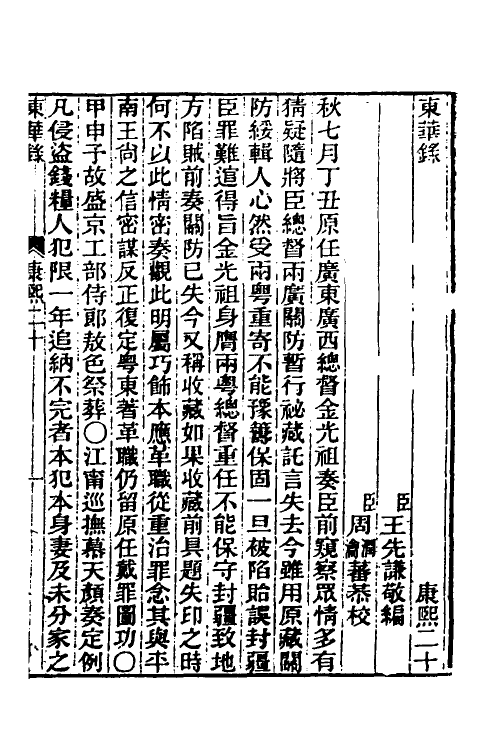 東華錄　康熙二十
臣王先謙敬編
臣周潤瀹蕃恭校
秋七月丁丑原任廣東廣西總督金光祖奏臣前窺察眾情多有
猜疑隨將臣總督兩廣關防暫行祕藏託言失去今雖用原藏關
防綏輯人心然受兩粵重寄不能豫籌保固一旦被陷貽誤封疆
臣罪難逭得旨金光祖身膺兩粵總督重任不能保守封疆致地
方陷賊前奏關防已失今又稱收藏如果收藏前具題失印之時
何不以此情密奏觀此明屬巧飾本應革職從重治罪念其與平
南王尚之信密謀反正復定粵東著革職仍留原任戴罪圖功〇
甲申予故盛京工部侍郎敖色祭葬〇江甯巡撫慕天顏奏定例
凡侵盜錢糧人犯限一年追納不完者本犯本身妻及未分家之
東華錄　康熙二十　一